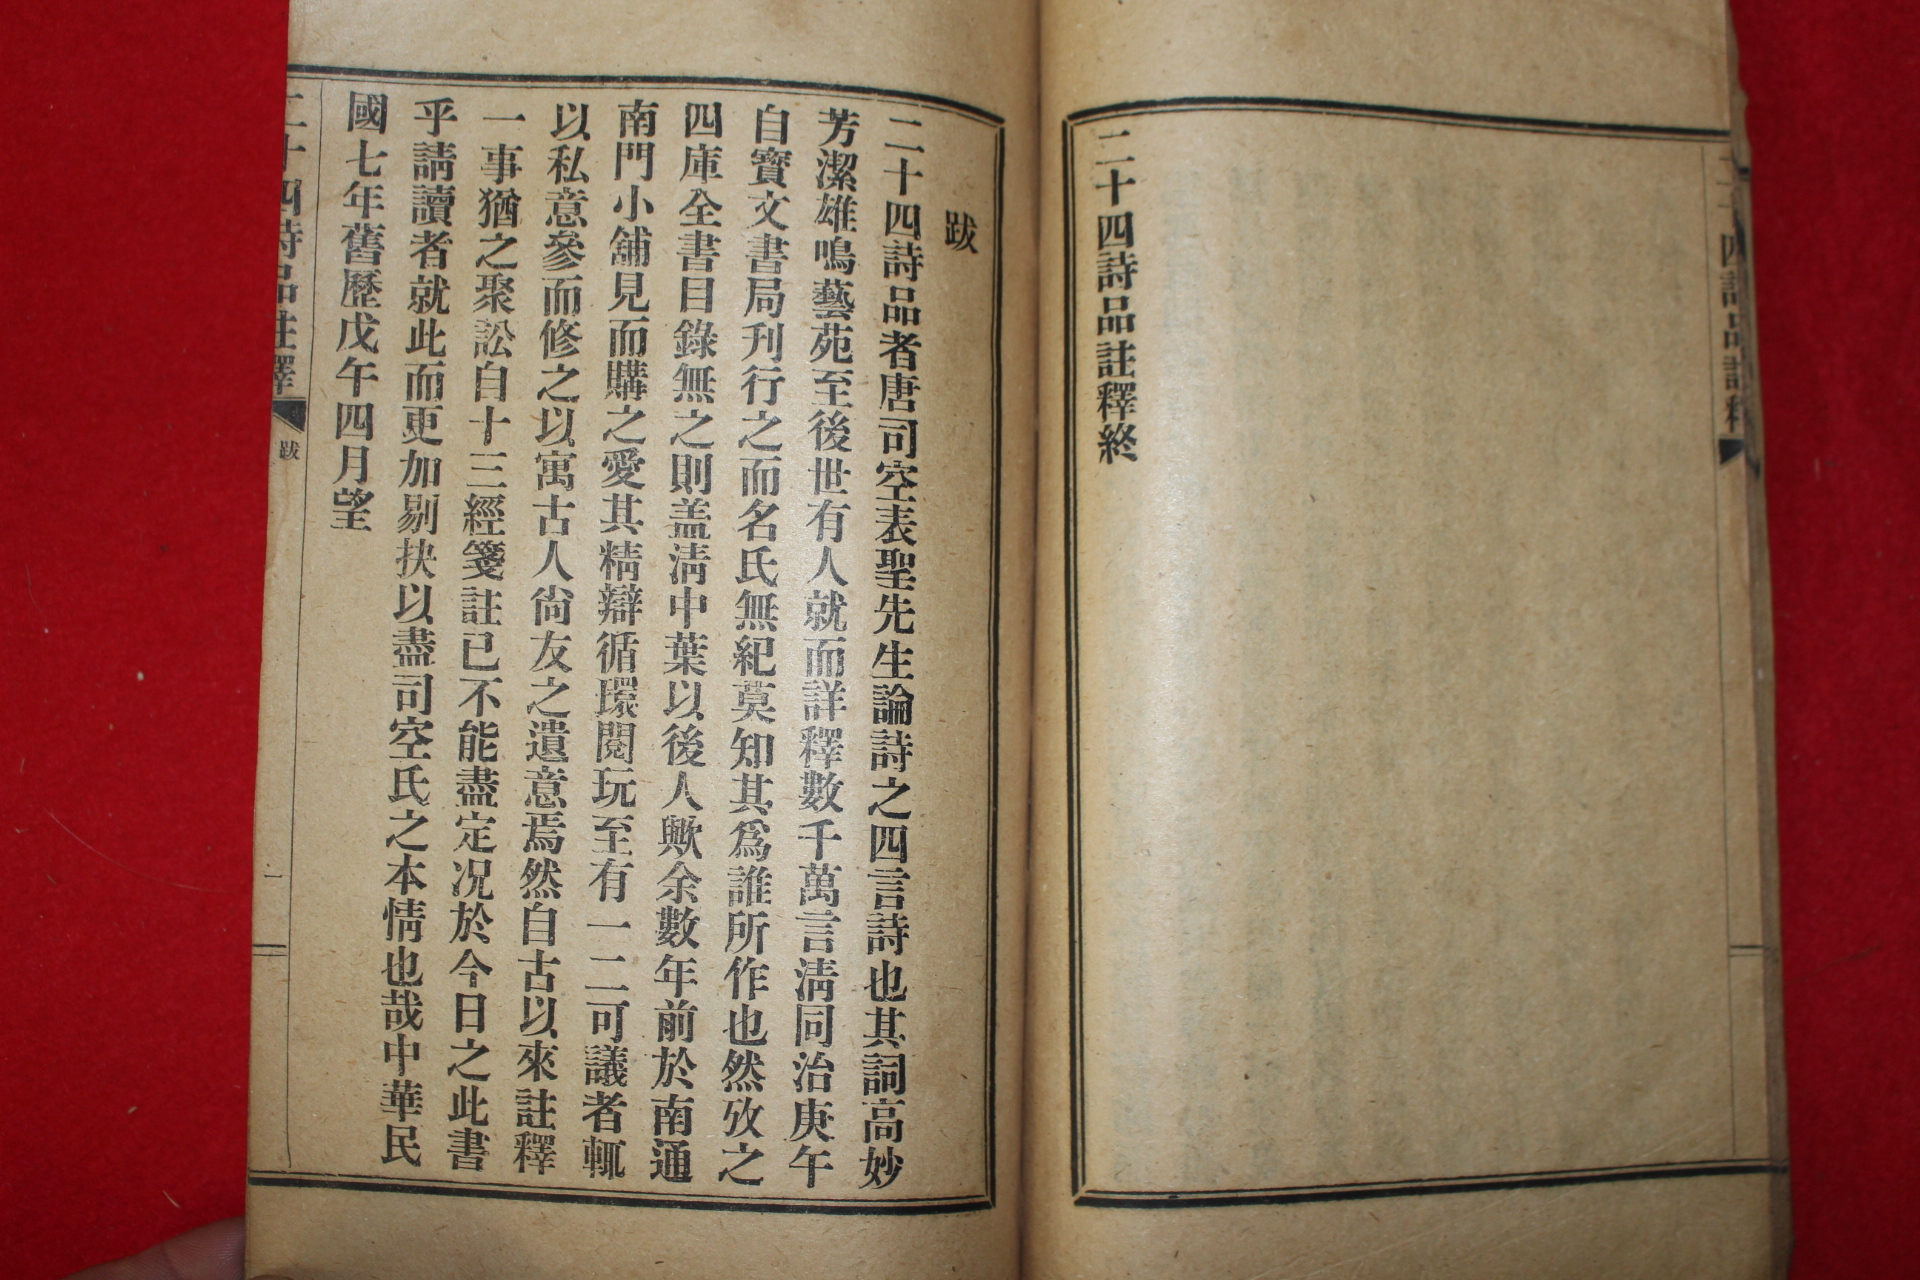 二十四詩品註釋終
跋
二十四詩品者唐司空表聖先生論詩之四言詩也其詞高妙
芳潔雄鳴藝苑至後世有人就而詳釋數千萬言淸同治庚午
自寳文書局刊行之而名氏無紀莫知其爲誰所作也然攷之
四庫全書目錄無之則盖淸中葉以後人歟余數年前於南通
南門小舖見而購之愛其精辯循環閱玩至有一二可議者輒
以私意參而修之以寓古人尙友之遺意焉然自古以來註釋
一事猶之聚訟自十三經箋註已不能盡定况於今日之此書
乎請讀者就此而更加剔抉以盡司空氏之本情也哉中華民
國七年舊歷戊午四月望
二十四詩品註釋
跋
一